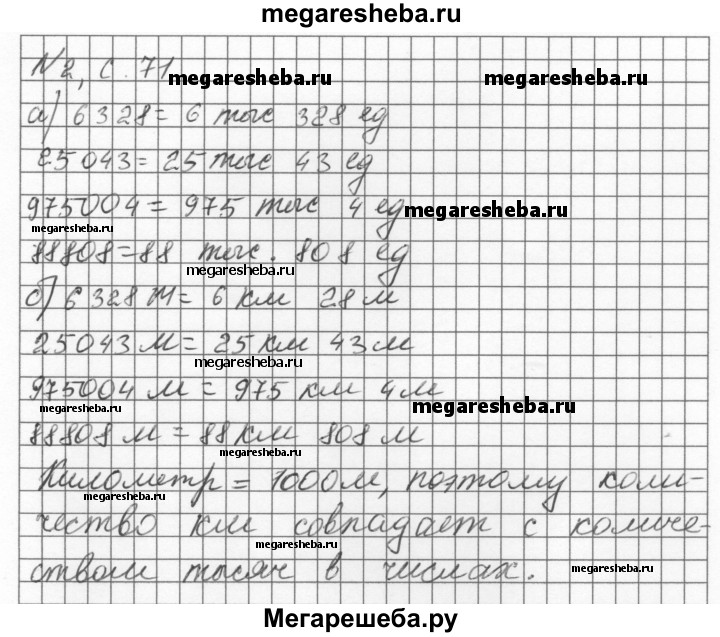 megaresheba.ru
№2, с. 71
megaresheba.ru megaresheba.ru
а) 6328 = 6 тыс 328 ед
25043 = 25 тыс 43 ед
975004 = 975 тыс 4 ед
megaresheba.ru
megaresheba.ru
88808 = 88 тыс. 808 ед
megaresheba.ru
б) 6328 м = 6 км 28 м
25043 м = 25 км 43 м
megaresheba.ru
975004 м = 975 км 4 м
megaresheba.ru megaresheba.ru
88808 м = 88 км 808 м
megaresheba.ru
Километр = 1000м, поэтому коли-
megaresheba.ru
чество км совпадает с количе-
megaresheba.ru
ством тысяч в числах.
megaresheba.ru
Мегарешеба.ру